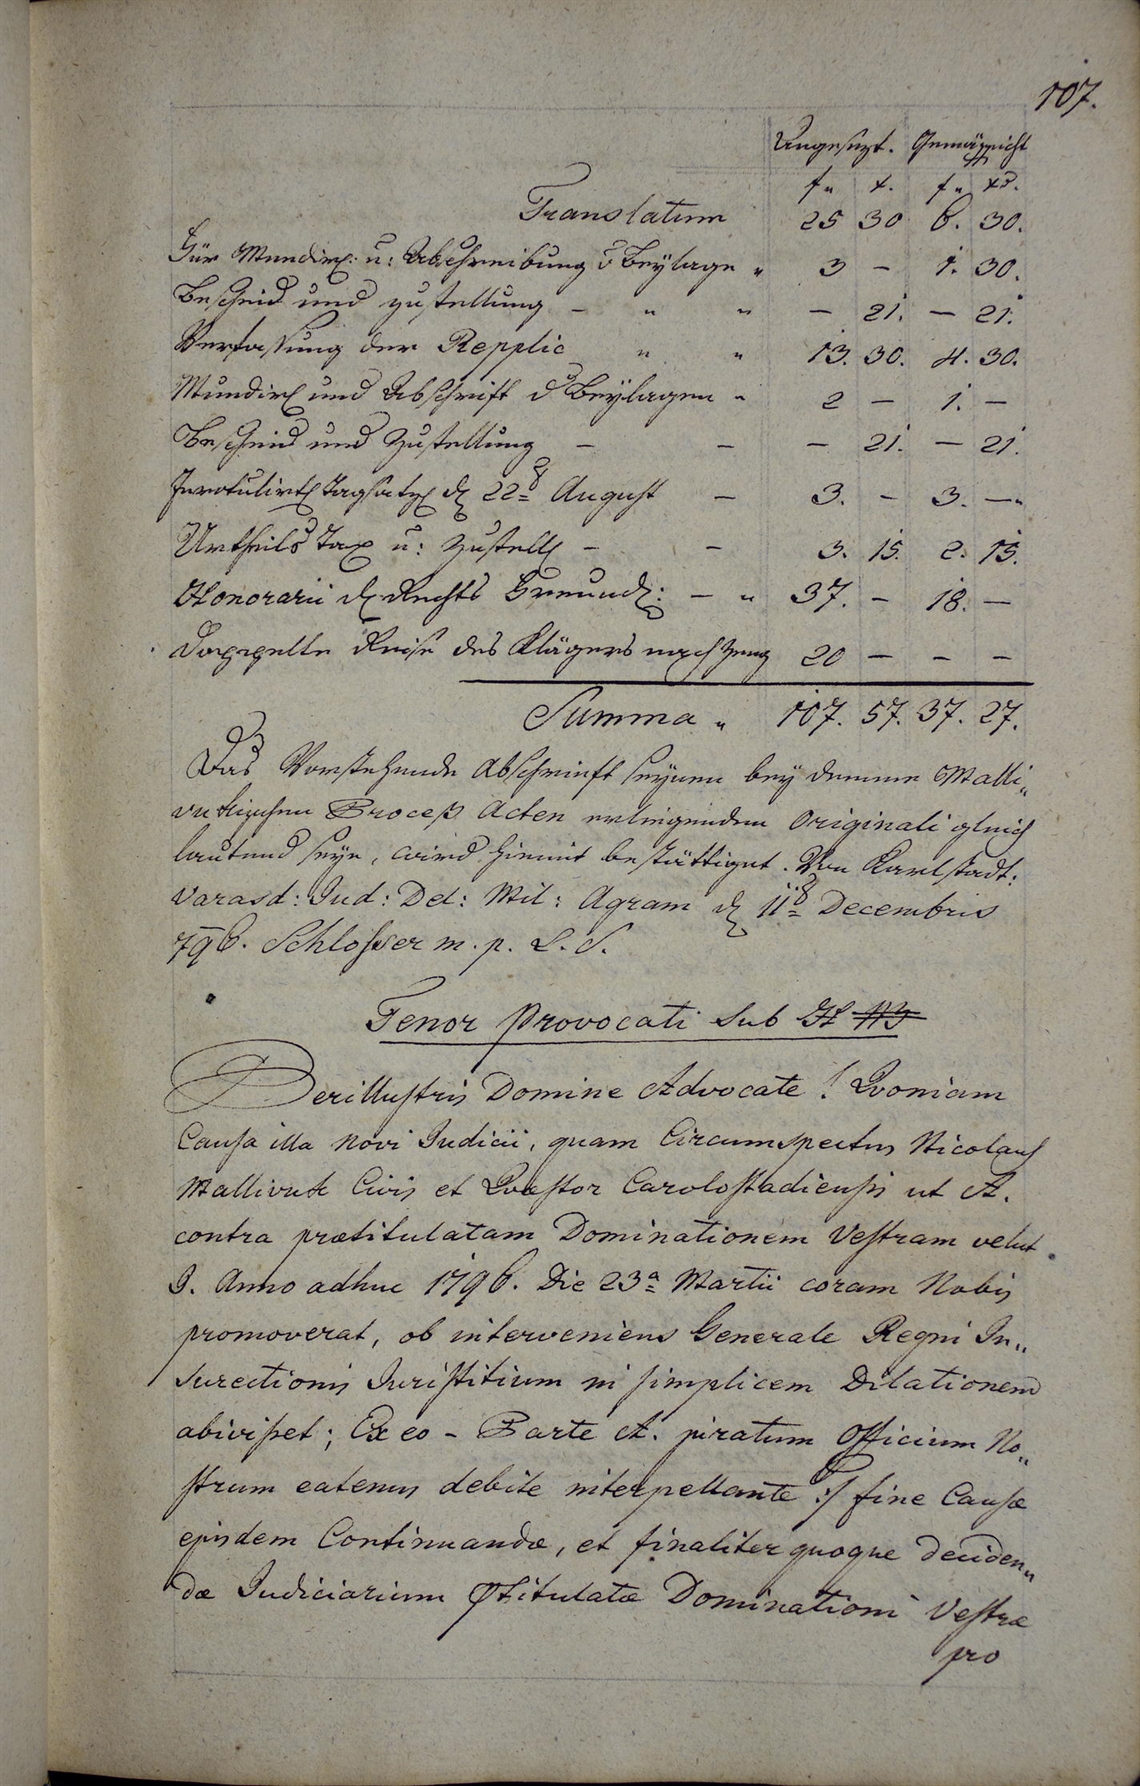 107.
Angesezt. Gemässicht
f" x. f" xr.
Translatum 25 30 6. 30.
Für Mundir: u: Abschreibung d Beylage " 3 – 1. 30.
Bescheid und zustellung – " " – 21. – 21.
Verfassung der Repplic " " 13. 30. 4. 30.
Mundir und Abschrift d Beylagen " 2 – 1. –
Bescheid und Zustellung – – – 21. – 21.
Inrotulirt Tagsatz d 22= August – 3. – 3. –
Urtheils Tax u: Zustell – – 3. 15. 2. 15.
Honorarii d Rechts Freund: – " 37. – 18. –
Doppelte Reise des Klägers nach Zeng 20 – – –
Summa " 107. 57. 37. 27.
Das Vorstehende Abschrieft seynen bey deme Malli"
vukizchen Proceß Acten erliegenden Originali gleich
lautend seye, wird hiemit bestättiget. Von Karlstadt:
Varasd: Jud: Del: Mil: Agram d 11= Decembris
796. Schlosser m. p. L. S.
Tenor Provocati sub H
Perillustris Domine Advocate! Quoniam
Causa illa Novi Judicii, quam Circumspectus Nicolaus
Mallivuk Civis et Quæstor Carolostadiensis ut A.
contra prætitulatam Dominationem Vestram velut
I. Anno adhuc 1796. Die 23a Martii coram Nobis
promoverat, ob interveniens Generale Regni In"
surectionis Juristitium in simplicem Dilationem
abivisset; Ex eo – Parte A. giratum Officium No"
strum eatenus debite interpellante :/ fine Causæ
ejusdem Continuandæ, et finaliter quoque deciden"
dæ Judiciarium Ptitulatæ Dominationi Vestræ
pro